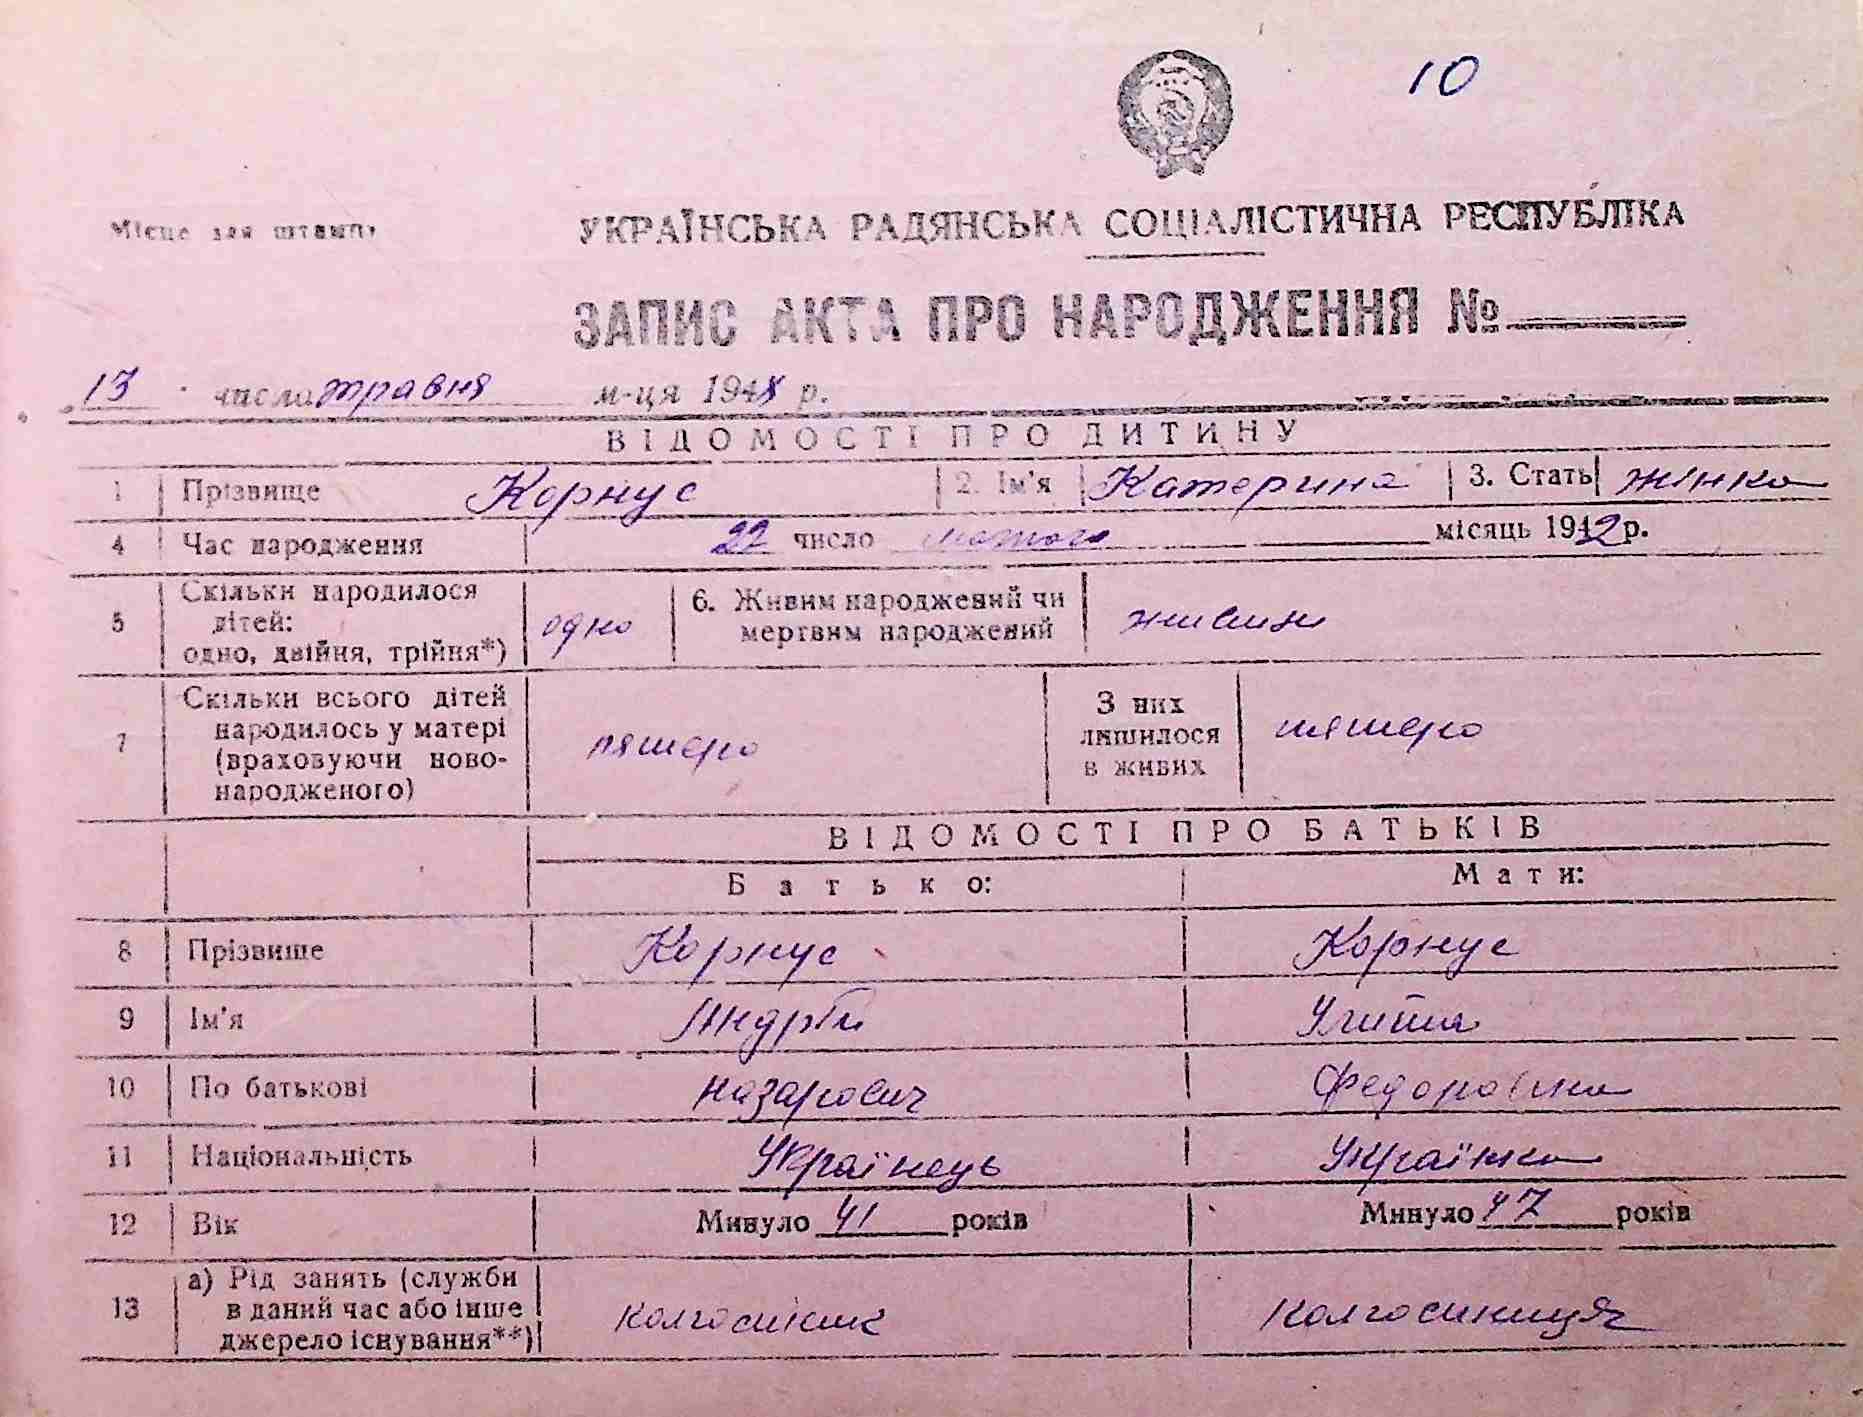 10
Місце для штампу
УКРАЇНСЬКА РАДЯНСЬКА СОЦІАЛІСТИЧНА РЕСПУБЛІКА
ЗАПИС АКТА ПРО НАРОДЖЕННЯ №
13 числа травня м-ця 1948 р.
ВІДОМОСТІ ПРО ДИТИНУ
1 Прізвище Корнус 2. Ім'я Катерина 3. Стать жінка
4 Час народження 22 число лютого місяць 1942 р.
5 Скільки народилося дітей: одно, двійня, трійня*) одно 6. Живим народжений чи мертвим народжений живим
7 Скільки всього дітей народилось у матері (враховуючи новонародженого) пятеро З них лишилося в живих пятеро
ВІДОМОСТІ ПРО БАТЬКІВ
Батько: Мати:
8 Прізвище Корнус Корнус
9 Ім'я Андрій
10 По батькові Назарович Федоровна
11 Національність Українець Українка
12 Вік Минуло 41 років Минуло 47 років
13 а) Рід занять (служби в даний час або інше джерело існування**) колгоспник колгоспниця